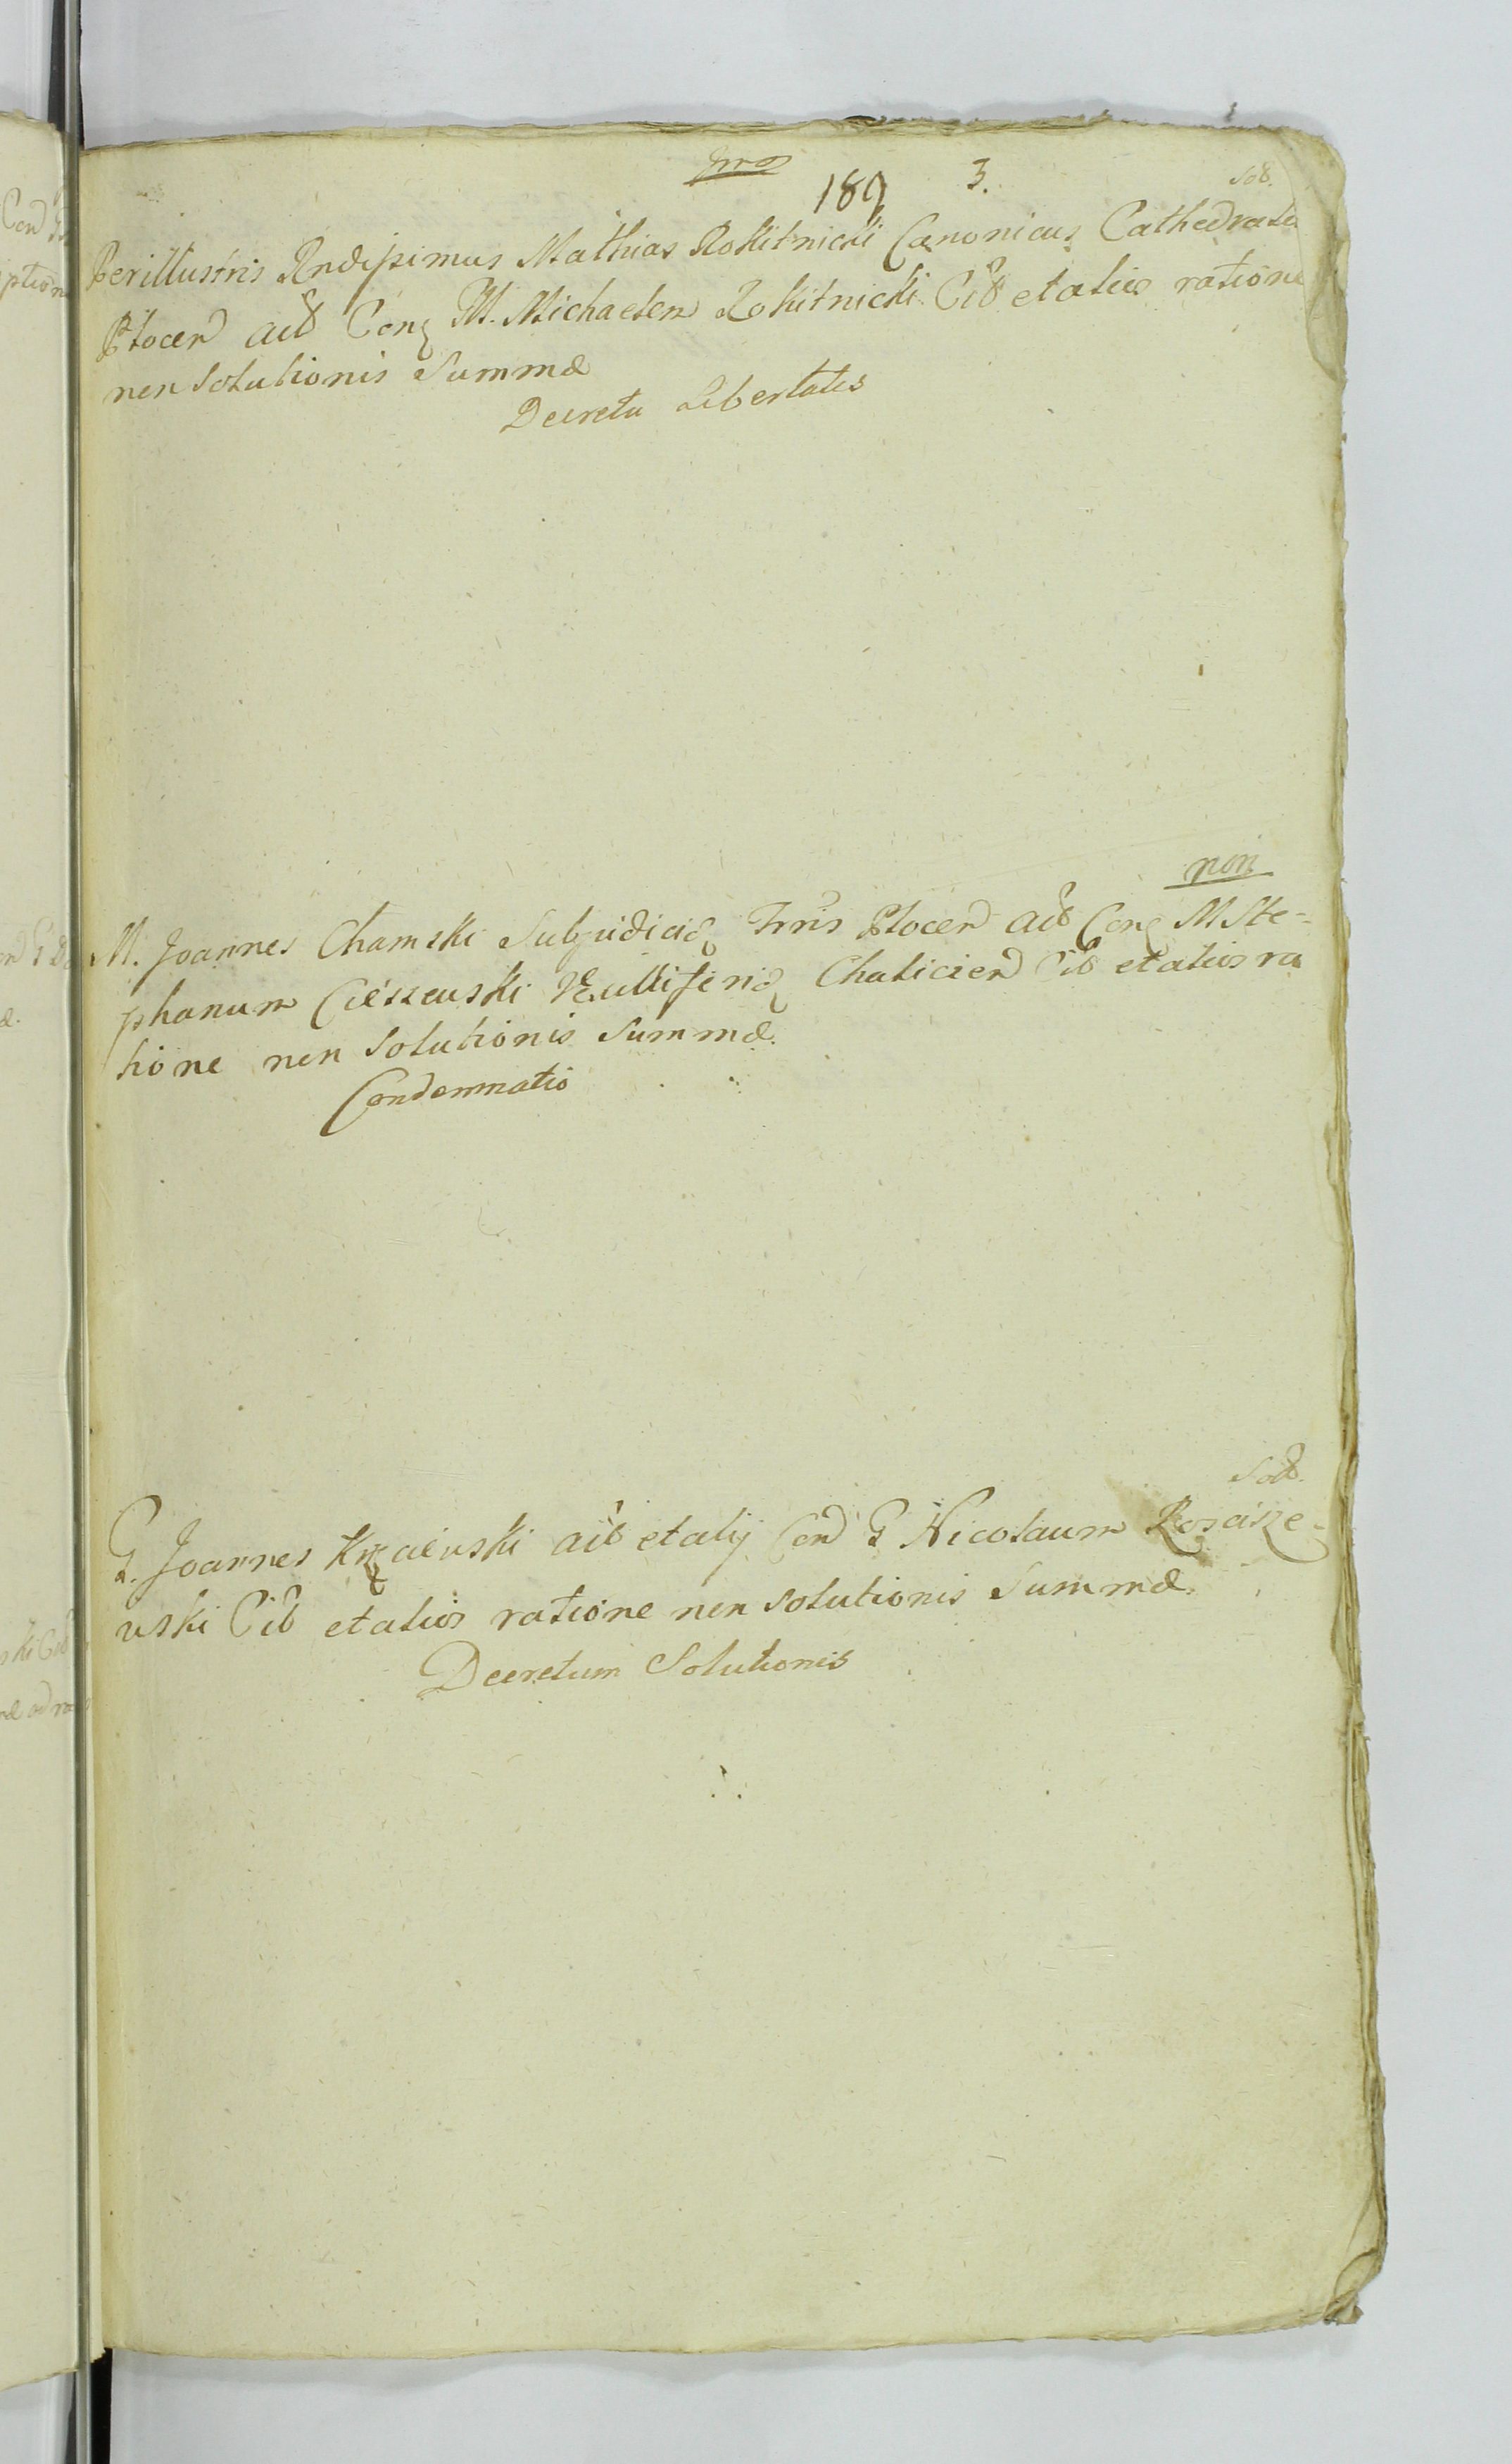 189 3.
Sol.
Perillustris Rndissimus Mathias Rokitnicki Canonicus Cathedralis
Plocen Act Conq M. Michaelem Rokitnicki Cit et alios ratione
non Solutionis Summæ
Decretu Libertatis
non
M. Joannes Chamski Subjudicią Trris Plocen Act Conq M Ste-
phanum Cieszewski Vexilliferią Chalicien Cit et alios ra
tione non Solutionis Summæ.
Condemnatio
Sol.
G. Joannes Krzaiewski Act et alij Con G Nicolaum Roscisze-
wski Cit et alios ratione non Solutionis Summæ.
Decretum Solutionis